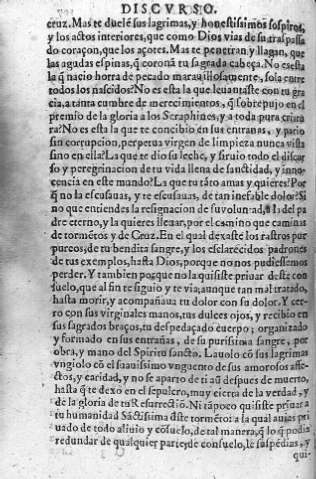 DISCVRSO.
cruz. Mas te duelẽ sus lagrimas, y honestissimos sospiros,
y los actos interiores, que como Dios vias de su traspassa
do coraçon, que los açotes. Mas te penetran y llagan, que
las agudas espinas, q̃ coronã tu sagrada cabeça. No es esta
la q̃ nacio horra de pecado marauillosamente, sola entre
todos los nascidos? No es esta la que leuantaste con tu gra
cia, a tanta cumbre de merecimientos, q̃ sobrepujo en el
premio de la gloria a los Seraphines, y a toda pura criatu
ra? No es esta la que te concibio en sus entrañas, y pario
sin corrupcion, perpetua virgen de limpieza nunca vista
sino en ella? La que te dio su leche, y siruio todo el discur
so y peregrinacion de tu vida llena de sanctidad, y inno-
cencia en este mundo? La que tu tãto amas y quieres? Por
q̃ no la escusauas, y te escusauas, de tan inefable dolor? Si
no que entiendes la resignacion de su volũtad, a la del pa
dre eterno, y la quieres lleuar, por el camino que caminas
de tormẽtos y de Cruz. En el qual dexaste los rastros pur
pureos, de tu bendita sangre, y los esclarecidos padrones
de tus exemplos, hasta Dios, porque no nos pudiessemos
perder. Y tambien porque no la quisiste priuar deste con
suelo, que al fin te siguio y te via, aunque tan mal tratado,
hasta morir, y acompañaua tu dolor con su dolor. Y cer-
ro con sus virginales manos, tus dulces ojos, y recibio en
sus sagrados braços, tu despedaçado cuerpo; organizado
y formado en sus entrañas, de su purissima sangre, por
obra, y mano del Spiritu sancto. Lauolo cõ sus lagrimas
vngiolo cõ el suauissimo vnguento de sus amorosos affe-
ctos, y caridad, y no se aparto de ti aũ despues de muerto,
hasta q̃ te dexo en el sepulcro, muy cierta de la verdad, y
de la gloria de tu Resurrectiõ. Ni tãpoco quisiste priuar a
tu humanidad Sãctissima diste tormẽto: a la qual auias pri
uado de todo aliuio y cõsuelo, de tal manera, q̃ lo q̃ podia
redundar de qualquier parte, de consuelo, le suspẽdias, y
qui-